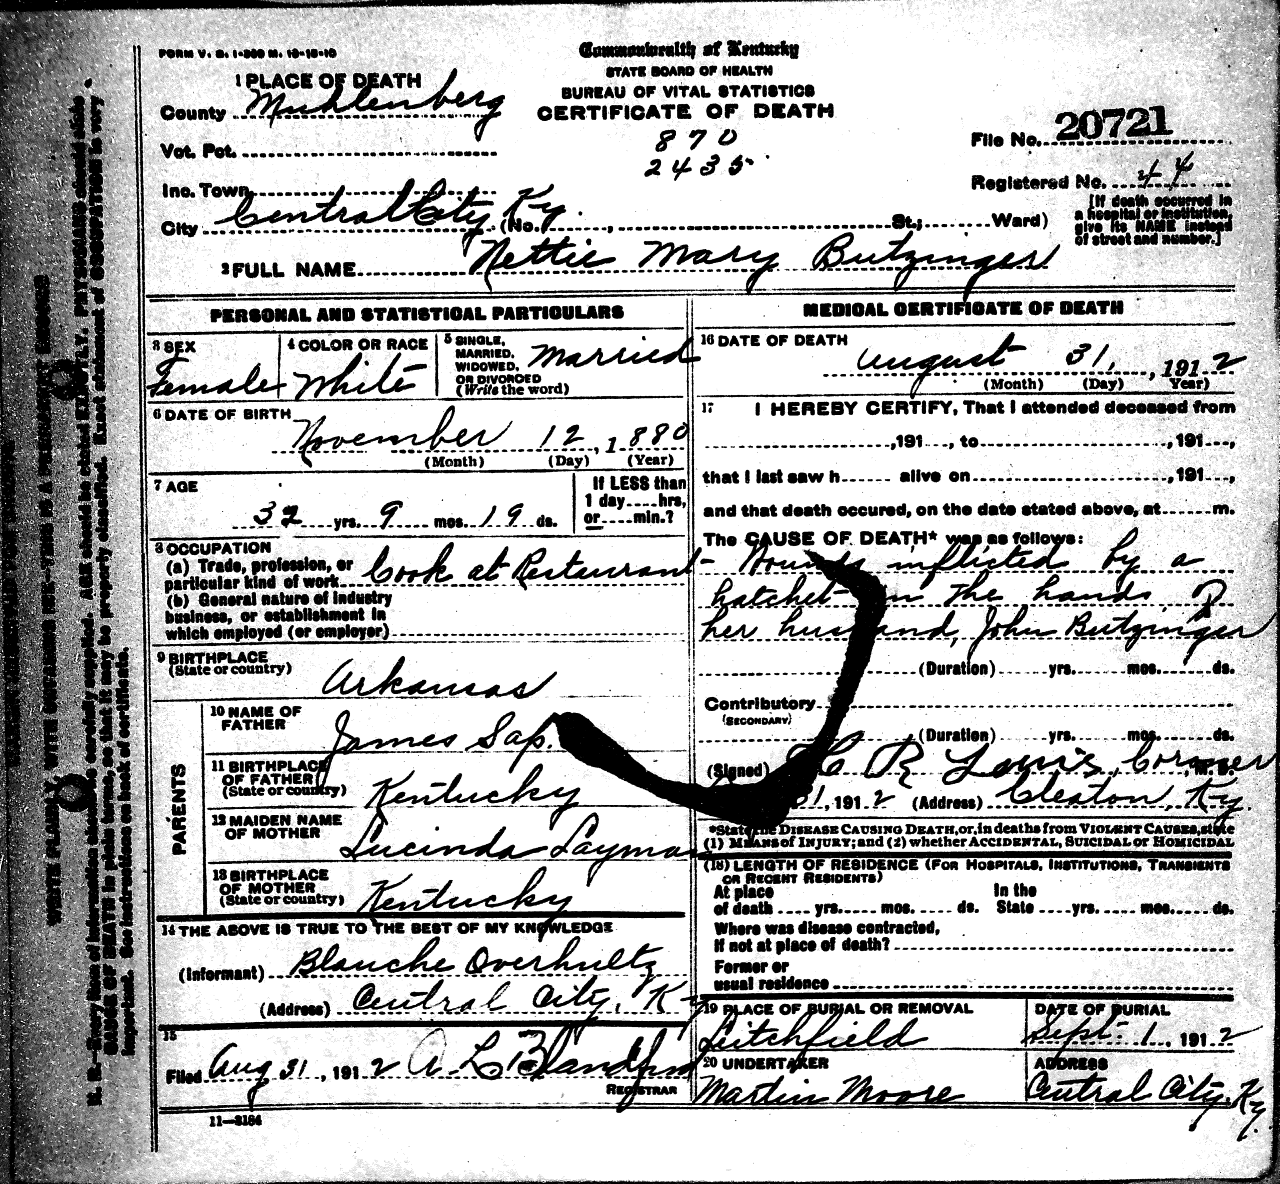 FORM V. S. 1-300 M. 10-18-10
Commonwealth of Kentucky
STATE BOARD OF HEALTH
BUREAU OF VITAL STATISTICS
CERTIFICATE OF DEATH
1 PLACE OF DEATH
County Muhlenberg
Vot. Pct.
870
2435
File No. 20721
Inc. Town
Registered No. 44
City Central City Ky. (No. , St.; Ward)
[If death occurred in a hospital or institution, give its NAME instead of street and number.]
2 FULL NAME Nettie Mary Butzinger
PERSONAL AND STATISTICAL PARTICULARS
3 SEX
Female
4 COLOR OR RACE
White
5 SINGLE, MARRIED, WIDOWED, OR DIVORCED (Write the word)
Married
6 DATE OF BIRTH
November 12, 1880
(Month) (Day) (Year)
7 AGE
32 yrs. 9 mos. 19 ds.
If LESS than 1 day hrs, or min.?
8 OCCUPATION
(a) Trade, profession, or particular kind of work Cook at Restaurant
(b) General nature of industry business, or establishment in which employed (or employer)
9 BIRTHPLACE
(State or country)
Arkansas
PARENTS
10 NAME OF FATHER
James Sap.
11 BIRTHPLACE OF FATHER (State or country)
Kentucky
12 MAIDEN NAME OF MOTHER
Lucinda Layman
13 BIRTHPLACE OF MOTHER (State or country)
Kentucky
14 THE ABOVE IS TRUE TO THE BEST OF MY KNOWLEDGE
(Informant) Blanche Overhultz
(Address) Central City, Ky
15
Filed Aug 31, 1912 A L Blandford
REGISTRAR
11—3184
MEDICAL CERTIFICATE OF DEATH
16 DATE OF DEATH
August 31, 1912
(Month) (Day) Year)
17 I HEREBY CERTIFY, That I attended deceased from
, 191 , to , 191 ,
that I last saw h alive on , 191 ,
and that death occured, on the date stated above, at m.
The CAUSE OF DEATH* was as follows:
Wounds inflicted by a
hatchet in the hands of
her husband, John Butzinger
(Duration) yrs. mos. ds.
Contributory
(SECONDARY)
(Duration) yrs. mos. ds.
(Signed) R Lewis, Coroner, M. D.
31, 1912 (Address) Cleaton, Ky.
*State the DISEASE CAUSING DEATH, or, in deaths from VIOLENT CAUSES, state
(1) MEANS of INJURY; and (2) whether ACCIDENTAL, SUICIDAL or HOMICIDAL
(18) LENGTH OF RESIDENCE (FOR HOSPITALS, INSTITUTIONS, TRANSIENTS
OR RECENT RESIDENTS)
At place of death yrs. mos. ds. In the State yrs. mos. ds.
Where was disease contracted,
If not at place of death?
Former or
usual residence
19 PLACE OF BURIAL OR REMOVAL
Leitchfield
DATE OF BURIAL
Sept. 1, 1912
20 UNDERTAKER
Martin Moore
ADDRESS
Central City, Ky.
WRITE PLAINLY, WITH UNFADING INK—THIS IS A PERMANENT RECORD
N. B.—Every item of information should be carefully supplied. AGE should be stated EXACTLY. PHYSICIANS should state
CAUSE OF DEATH in plain terms, so that it may be properly classified. Exact statement of OCCUPATION is very
important. See instructions on back of certificate.